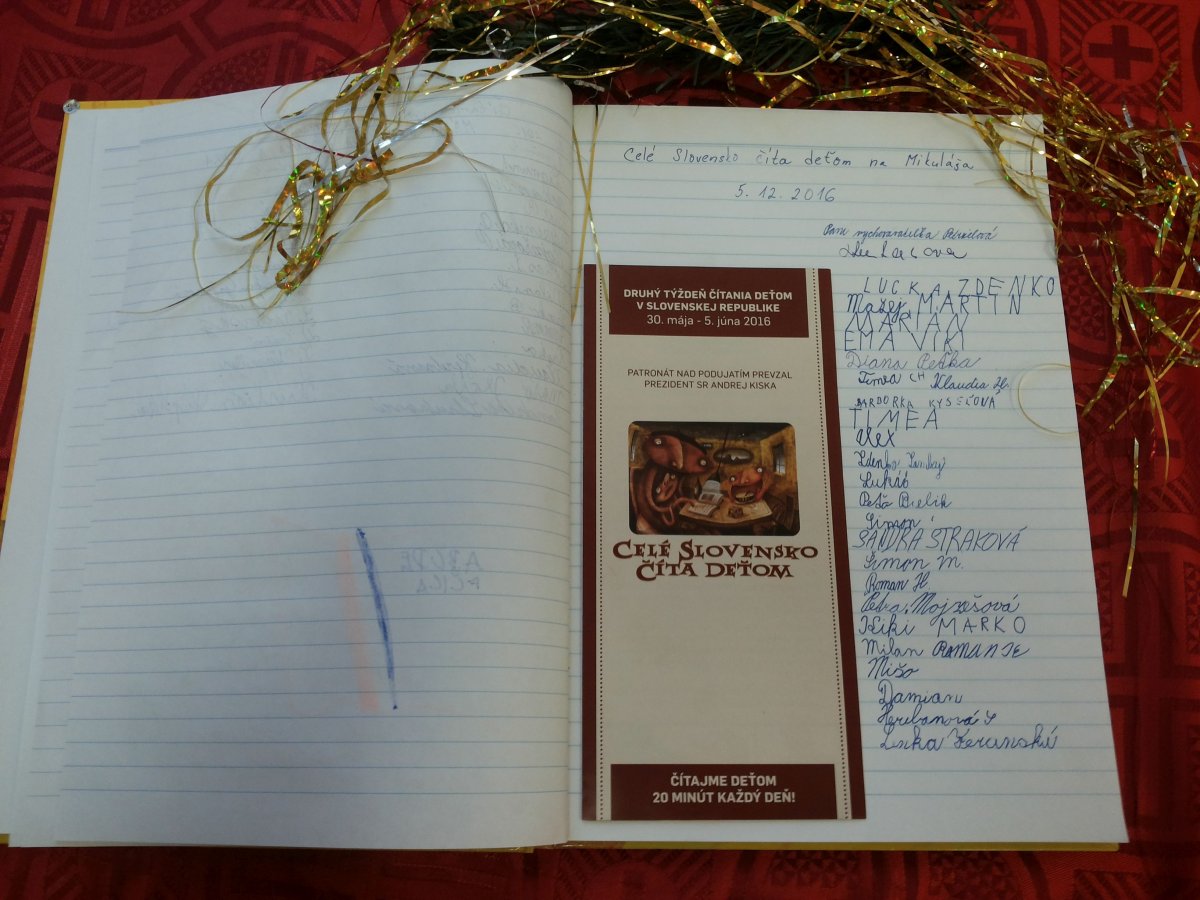 Celé Slovensko číta deťom na Mikuláša
5. 12. 2016
Pani vychovávateľka
DRUHÝ TÝŽDEŇ ČÍTANIA DEŤOM
V SLOVENSKEJ REPUBLIKE
30. mája - 5. júna 2016
PATRONÁT NAD PODUJATÍM PREVZAL
PREZIDENT SR ANDREJ KISKA
CELÉ SLOVENSKO
ČÍTA DEŤOM
ČÍTAJME DEŤOM
20 MINÚT KAŽDÝ DEŇ!
LUCKA, ZDENKO
Matej MARTIN
MARIÁN
EMA VIKI
Diana Peťka
Timea CH Klaudia H.
BARBORKA KYSEĽOVÁ
TIMEA
Alex
Zdenko
Lukáš
Peťo Bielik
Simon
SANDRA STRAKOVÁ
Simon M.
Roman H.
Petra Mojzešová
Kiki MARKO
Milan ROMAN JE
Mišo
Damian
Heribanová S
Lenka